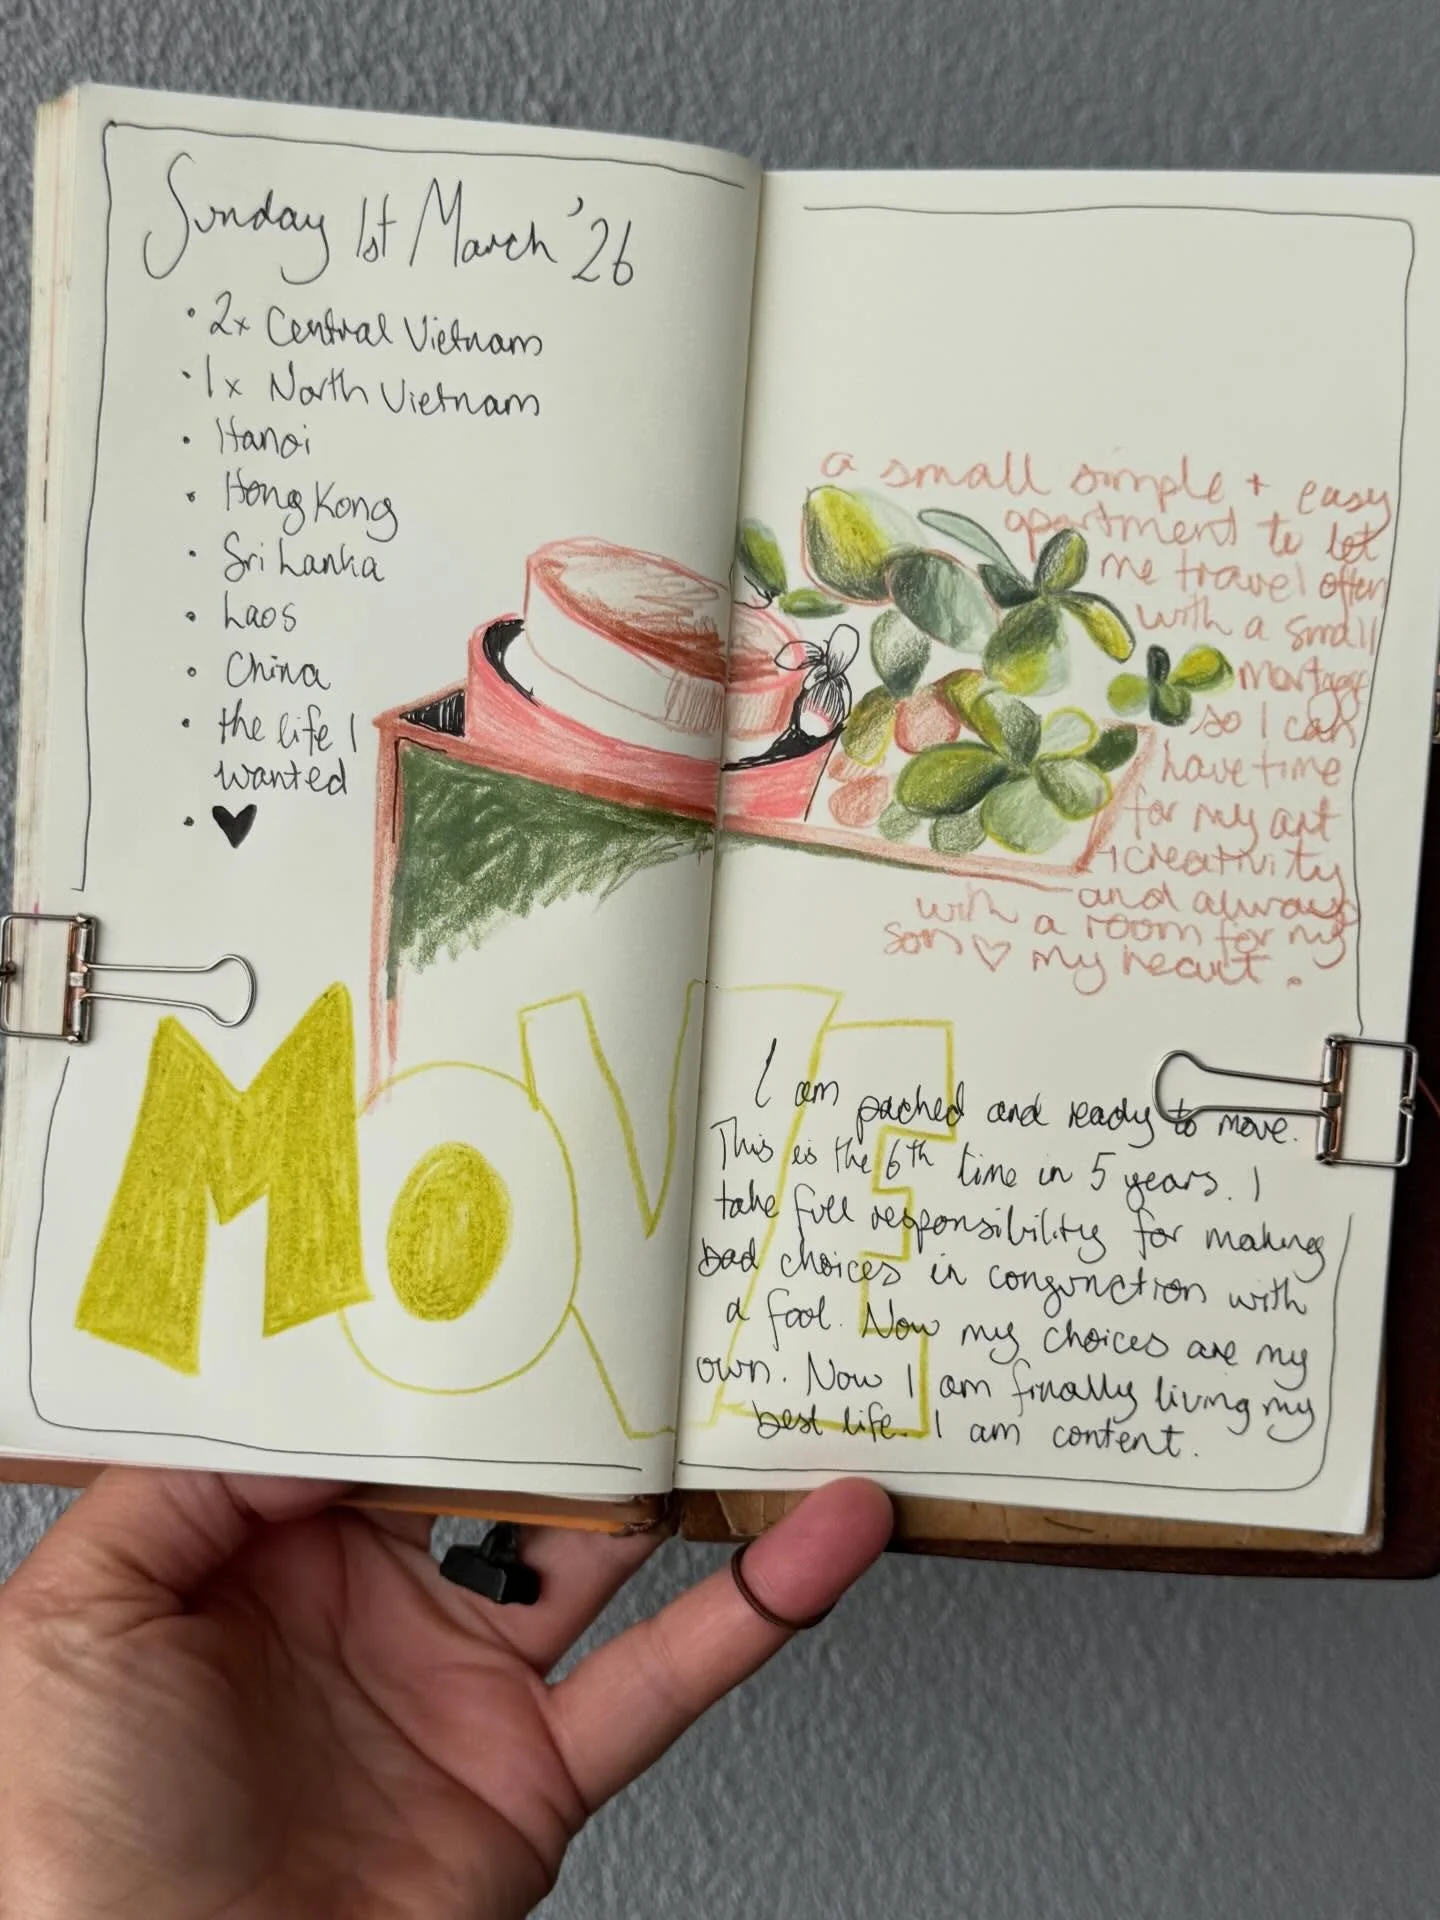 Sunday 1st March '26
• 2x Central Vietnam
• 1x North Vietnam
• Hanoi
• Hong Kong
• Sri Lanka
• Laos
• China
• the life I
wanted
• ♥
a small simple + easy
apartment to let
me travel often
with a small
mortgage
so I can
have time
for my art
+ creativity
and always
with a room for my
son ♡ my heart.
MOVE
I am packed and ready to move.
This is the 6th time in 5 years. I
take full responsibility for making
bad choices in conjunction with
a fool. Now my choices are my
own. Now I am finally living my
best life. I am content.